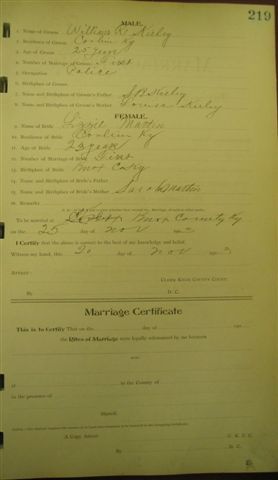 219
MALE.
1. Name of Groom William R. Kirby
2. Residence of Groom Corbin Ky
3. Age of Groom 25 years
4. Number of Marriage of Groom First
5. Occupation Police
6. Birthplace of Groom
7. Name and Birthplace of Groom's Father
8. Name and Birthplace of Groom's Mother Louisa Kirby
FEMALE.
9. Name of Bride Lizzie Martin
10. Residence of Bride Corbin Ky
11. Age of Bride 23 years
12. Number of Marriage of Bride First
13. Birthplace of Bride Knox Co Ky
14. Name and Birthplace of Bride's Father
15. Name and Birthplace of Bride's Mother Sarah Martin
16. Remarks
To be married at Knox County Ky
on the 25 day of Nov 190
I Certify that the above is correct to the best of my knowledge and belief.
Witness my hand, this day of Nov 190
Attest:
Clerk Knox County Court.
By D. C.
Marriage Certificate
This is to Certify That on the day of 190
the Rites of Marriage were legally solemnized by me between
and
at in the County of
in the presence of
Signed
A Copy Attest: C. K. C. C.
By D. C.